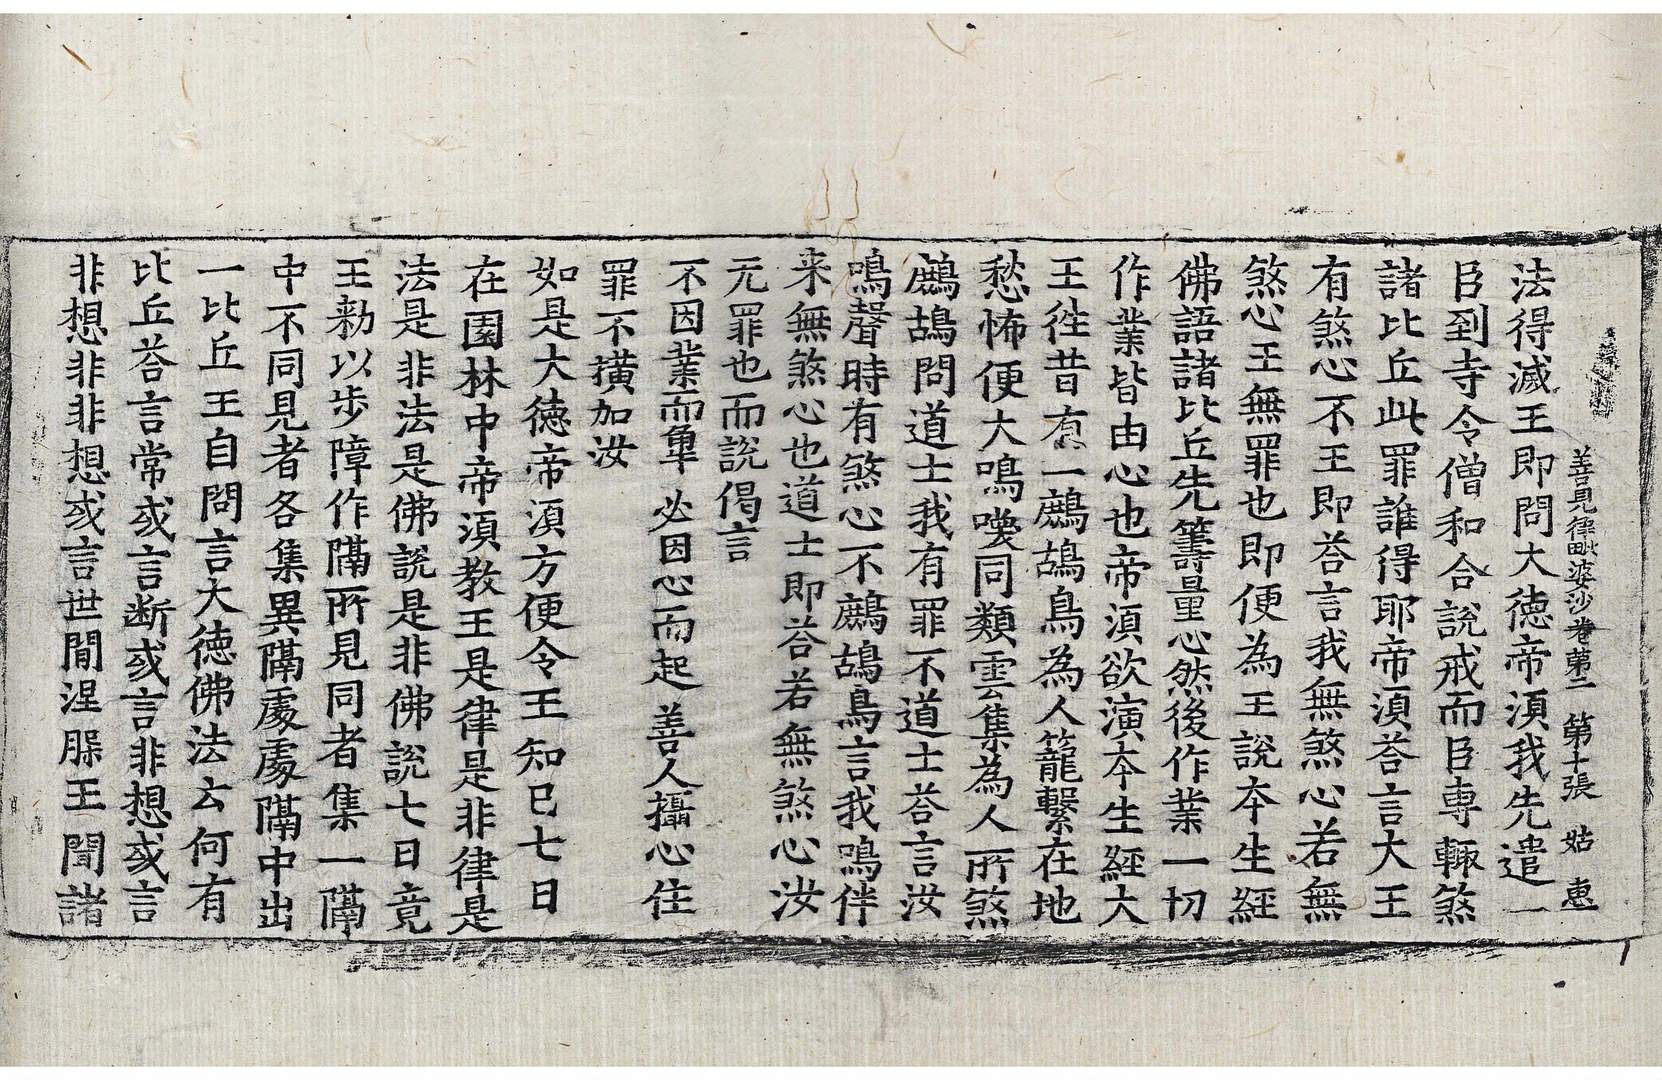 善見律毗婆沙卷第二　第十張　姑　惠
法得滅王即問大德帝湏我先遣一
臣到寺令僧和合說戒而臣專輙煞
諸比丘此罪誰得耶帝湏荅言大王
有煞心不王即荅言我無煞心若無
煞心王無罪也即便為王說夲生經
佛語諸比丘先籌量心然後作業一切
作業皆由心也帝湏欲演夲生經大
王徃昔有一鷓鴣鳥為人籠繫在地
愁怖便大鳴喚同類雲集為人所煞
鷓鴣問道士我有罪不道士荅言汝
鳴聲時有煞心不鷓鴣鳥言我鳴伴
来無煞心也道士即荅若無煞心汝
无罪也而說偈言
不因業而𢍆　必因心而起　善人攝心住
罪不撗加汝
如是大德帝湏方便令王知已七日
在園林中帝湏教王是律是非律是
法是非法是佛說是非佛說七日竟
王勑以步障作隔所見同者集一隔
中不同見者各集異隔處處隔中出
一比丘王自問言大德佛法云何有
比丘荅言常或言断或言非想或言
非想非非想或言世間涅脲王聞諸